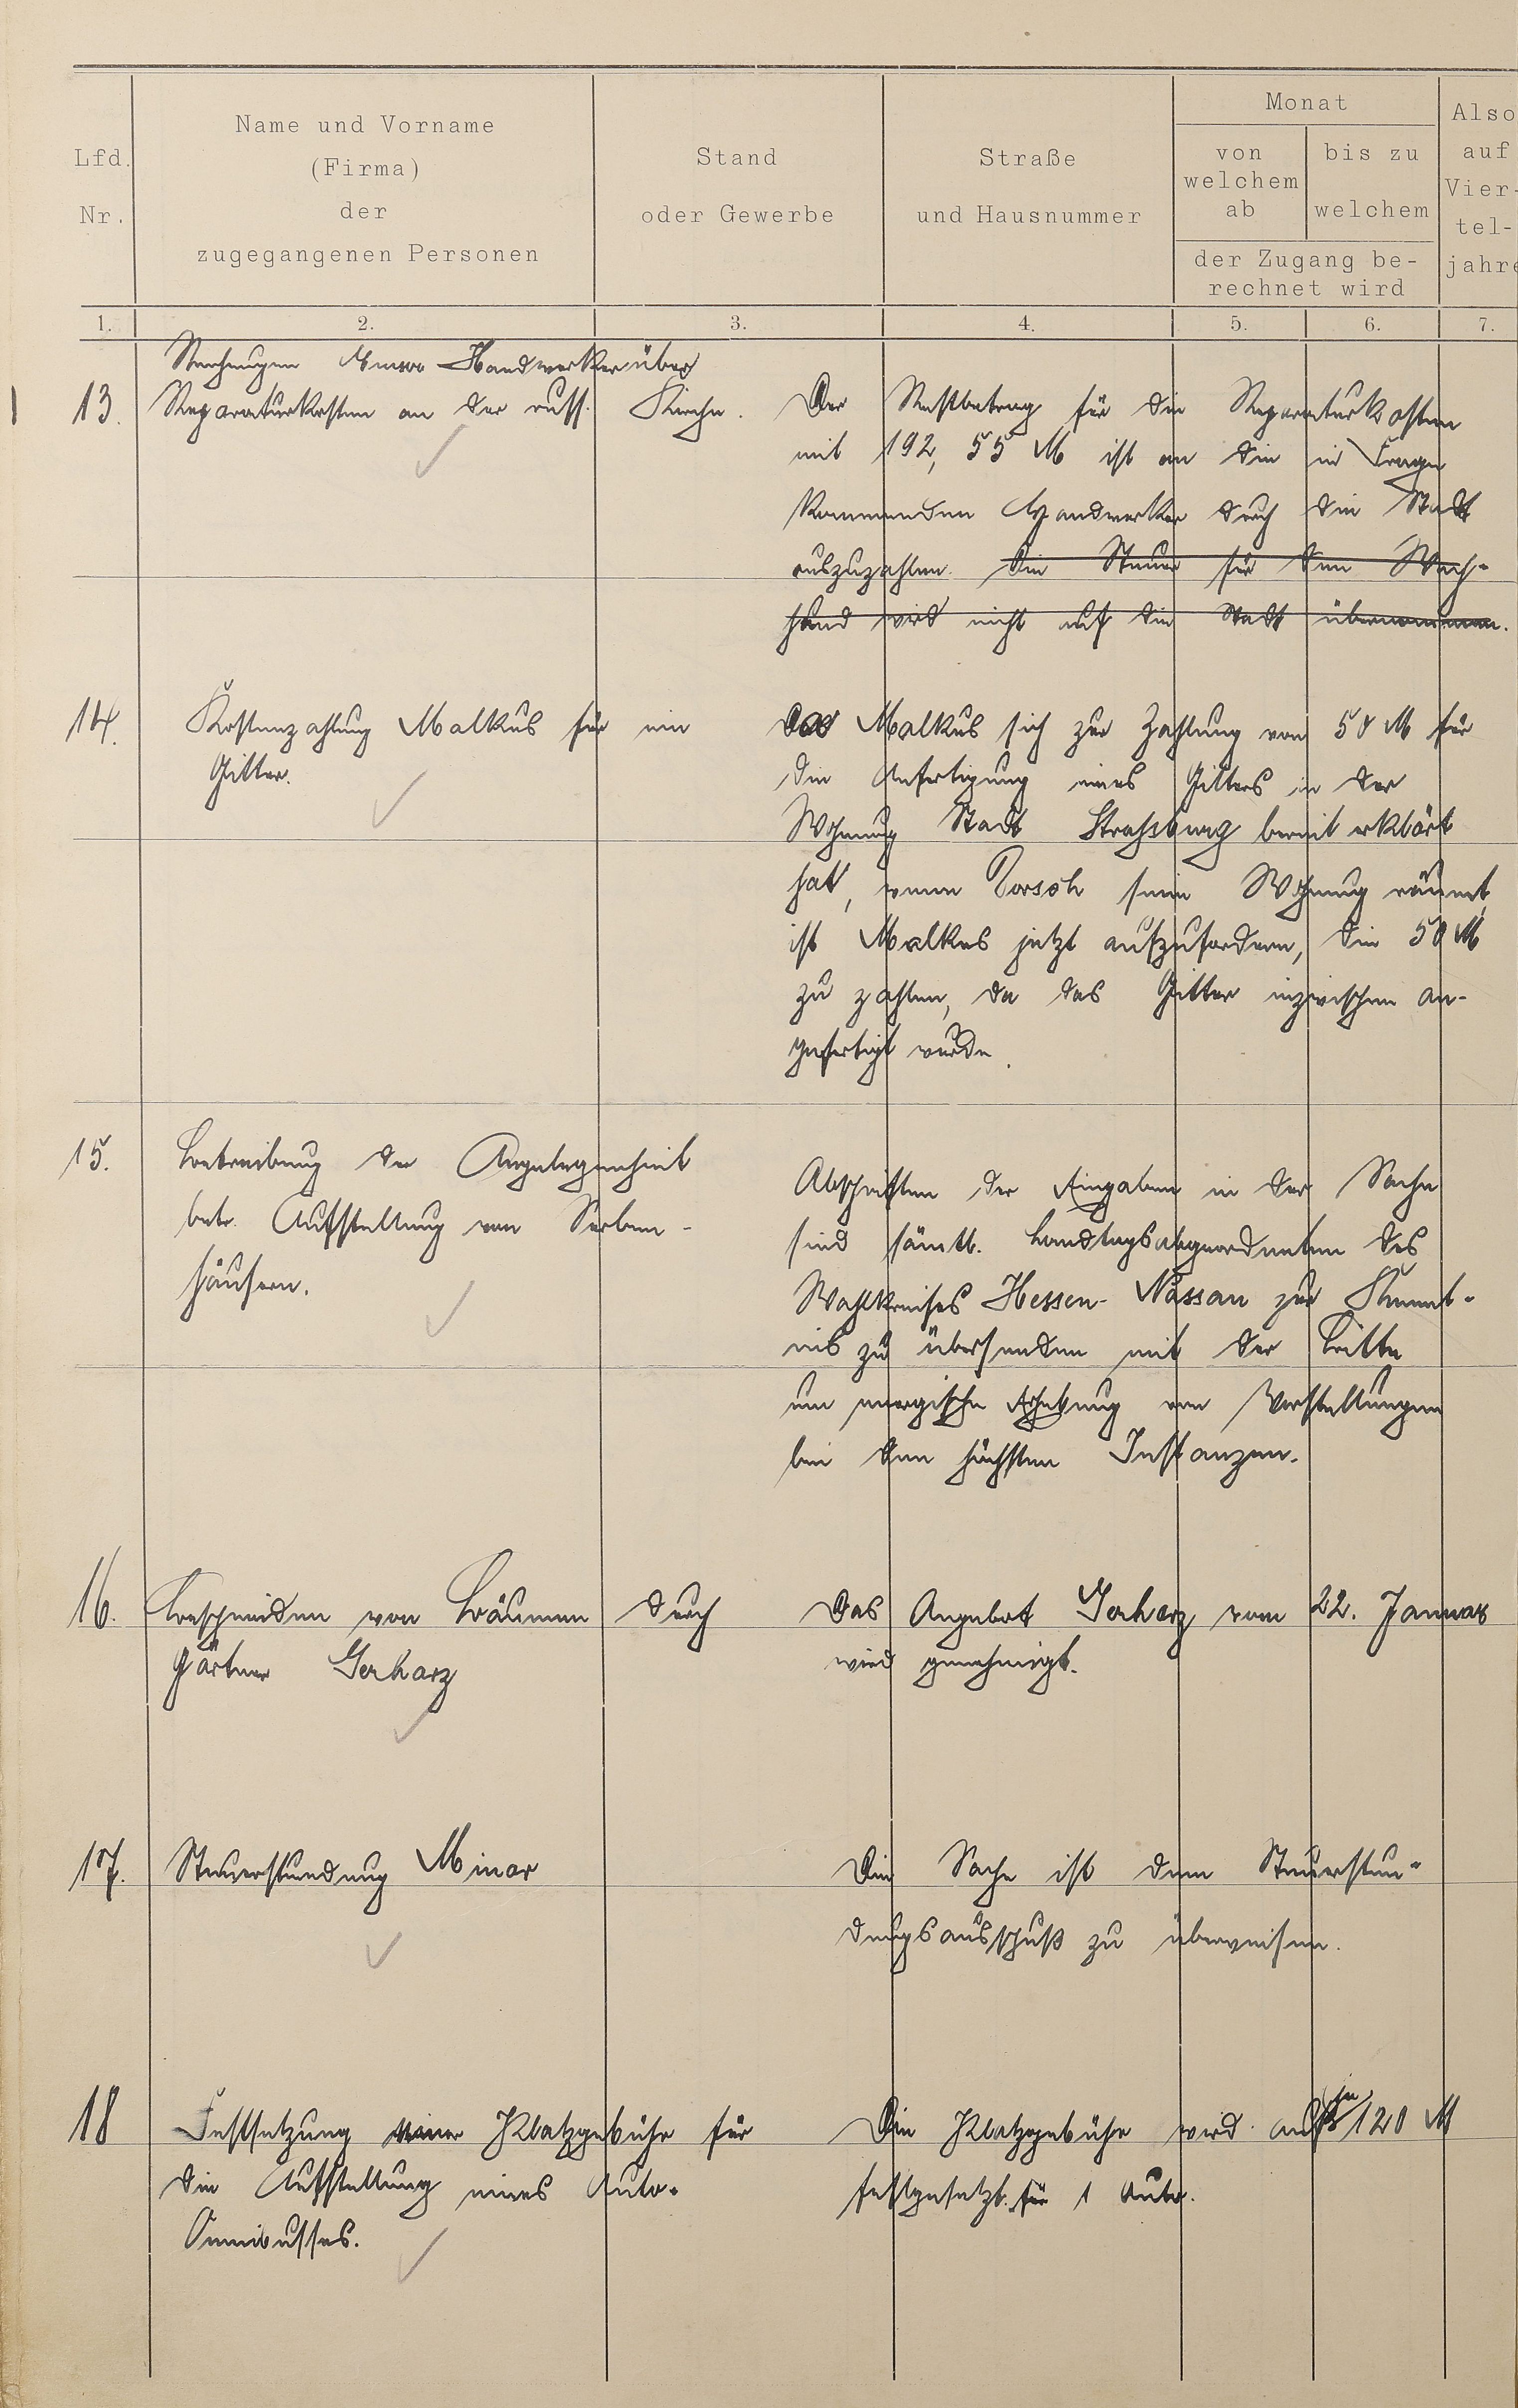 Lfd. Nr.
Name und Vorname
(Firma)
der
zugegangenen Personen
Stand
oder Gewerbe
Straße
und Hausnummer
Monat
von
welchem
ab
bis zu
welchem
der Zugang be-
rechnet wird
Also
auf
Vier-
tel-
jahre
1. 2. 3. 4. 5. 6. 7.
Rechnungen Emser Handwerker über
13. Reparaturkosten an der russ. Kirche.
Der Restbetrag für die Reparaturkosten
mit 192,55 M ist an die in Frage
kommenden Handwerker durch die Stadt
auszuzahlen. Die Steuer für den Wach-
hund wird nicht auf die Stadt übernommen.
14. Kostenzahlung Malkus für ein
Gitter.
Da Malkus sich zur Zahlung von 50 M für
die Anfertigung eines Gitters in der
Wohnung Stadt Straßburg bereit erklärt
hat, wenn Dorsch seine Wohnung räumt,
ist Malkus jetzt aufzufordern, die 50 M
zu zahlen, da das Gitter inzwischen an-
gefertigt wurde.
15. Betreibung der Angelegenheit
betr. Aufstellung von
häusern.
Abschriften der Eingaben in der Sache
sind sämtl. Landtagsabgeordneten des
Wahlkreises Hessen-Nassau zur Kennt-
nis zu übersenden mit der Bitte
um energische Erhebung von Vorstellungen
bei den höchsten Instanzen.
16. Beschneiden von Bäumen durch
Gärtner Gerharz
Das Angebot Gerharz vom 22. Januar
wird genehmigt.
17. Steuerstundung Minor
Die Sache ist dem Steuerstun-
dungsausschuß zu überweisen.
18 Festsetzung einer Platzgebühr für
die Aufstellung eines Auto-
Omnibusses.
Die Platzgebühr wird auf je 120 M
festgesetzt für 1 Auto.